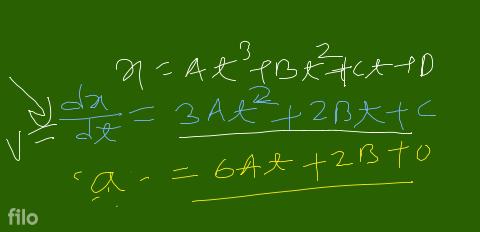 x = At³ + Bt² + Ct + D
V = dx/dt = 3At² + 2Bt + C
a = 6At + 2B + 0
filo